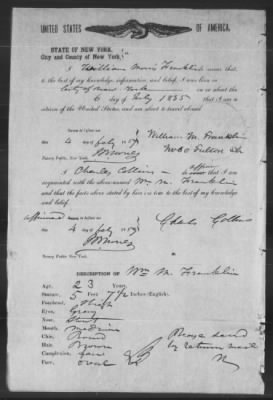 UNITED STATES OF AMERICA.
STATE OF NEW YORK,
City and County of New York,
I William Morris Franklin swear that,
to the best of my knowledge, information, and belief, I was born in
City of New York on or about the
6 day of July 1835 that I am a
citizen of the United States, and am about to travel abroad.
Sworn to before me
4 day July
William M. Franklin
Fulton
Notary Public, New York.
I Charles Collins that I am
acquainted with the above named Wm M. Franklin
and that the facts above stated by him are true to the best of my knowledge
and belief.
affirmed to before me
4 day of July
Chas Collins
Notary Public, New York.
DESCRIPTION OF Wm M. Franklin
Age, 23 Years.
Stature, 5 Feet 7 1/2 Inches (English).
Forehead,
Eyes, Gray
Nose,
Mouth, Medium
Chin, Round
Hair, Brown
Complexion,
Face, oval
Please send
by return mail